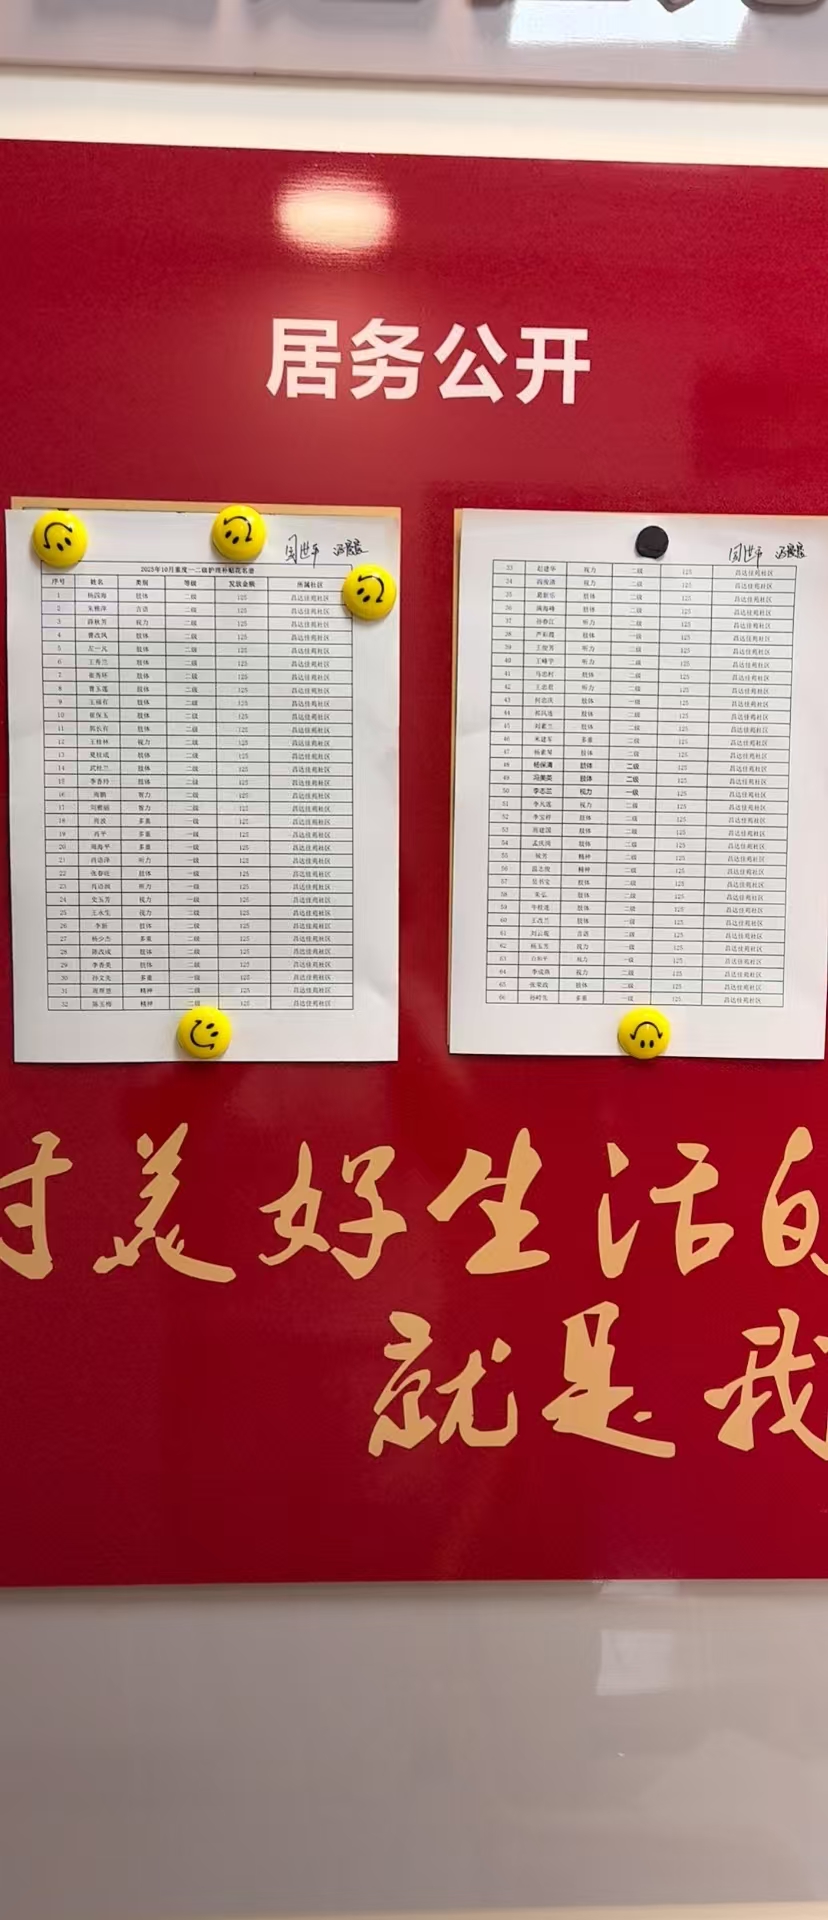 居务公开
2025年10月重度一二级护理补贴花名册
序号 姓名 类别 等级 发放金额 所属社区
1 肢体 二级 125 昌达佳苑社区
2 言语 二级 125 昌达佳苑社区
3 视力 二级 125 昌达佳苑社区
4 肢体 二级 125 昌达佳苑社区
5 左一凡 肢体 二级 125 昌达佳苑社区
6 王秀兰 肢体 二级 125 昌达佳苑社区
7 肢体 二级 125 昌达佳苑社区
8 曹玉莲 肢体 二级 125 昌达佳苑社区
9 王福有 肢体 二级 125 昌达佳苑社区
10 崔保玉 肢体 二级 125 昌达佳苑社区
11 郭长有 肢体 二级 125 昌达佳苑社区
12 王桂林 视力 二级 125 昌达佳苑社区
13 肢体 二级 125 昌达佳苑社区
14 武桂兰 肢体 二级 125 昌达佳苑社区
15 李香玲 肢体 二级 125 昌达佳苑社区
16 周鹏 智力 二级 125 昌达佳苑社区
17 智力 二级 125 昌达佳苑社区
18 肖波 多重 一级 125 昌达佳苑社区
19 肖平 多重 一级 125 昌达佳苑社区
20 周海平 多重 一级 125 昌达佳苑社区
21 听力 一级 125 昌达佳苑社区
22 张春旺 肢体 一级 125 昌达佳苑社区
23 听力 一级 125 昌达佳苑社区
24 史玉芳 视力 一级 125 昌达佳苑社区
25 王永生 视力 二级 125 昌达佳苑社区
26 肢体 二级 125 昌达佳苑社区
27 杨少杰 多重 二级 125 昌达佳苑社区
28 陈改成 肢体 二级 125 昌达佳苑社区
29 李香英 肢体 二级 125 昌达佳苑社区
30 孙文先 多重 一级 125 昌达佳苑社区
31 精神 二级 125 昌达佳苑社区
32 陈玉梅 精神 二级 125 昌达佳苑社区
33 赵建华 视力 二级 125 昌达佳苑社区
34 视力 二级 125 昌达佳苑社区
35 葛新乐 肢体 二级 125 昌达佳苑社区
36 肢体 二级 125 昌达佳苑社区
37 孙春江 听力 二级 125 昌达佳苑社区
38 严彩霞 肢体 一级 125 昌达佳苑社区
39 王俊芳 听力 二级 125 昌达佳苑社区
40 王峰宇 听力 二级 125 昌达佳苑社区
41 马忠村 肢体 二级 125 昌达佳苑社区
42 王忠君 听力 二级 125 昌达佳苑社区
43 何忠庆 肢体 一级 125 昌达佳苑社区
44 郑凤连 肢体 二级 125 昌达佳苑社区
45 刘素兰 肢体 二级 125 昌达佳苑社区
46 米建军 多重 二级 125 昌达佳苑社区
47 杨素琴 肢体 二级 125 昌达佳苑社区
48 杨保清 肢体 二级 125 昌达佳苑社区
49 冯美英 肢体 二级 125 昌达佳苑社区
50 李志兰 视力 一级 125 昌达佳苑社区
51 李凡莲 视力 二级 125 昌达佳苑社区
52 李宝婷 肢体 二级 125 昌达佳苑社区
53 肢体 二级 125 昌达佳苑社区
54 孟庆国 肢体 二级 125 昌达佳苑社区
55 侯芳 精神 二级 125 昌达佳苑社区
56 苗志俊 精神 二级 125 昌达佳苑社区
57 张书堂 肢体 二级 125 昌达佳苑社区
58 朱弘 肢体 二级 125 昌达佳苑社区
59 牛银莲 肢体 二级 125 昌达佳苑社区
60 王改兰 肢体 一级 125 昌达佳苑社区
61 刘云霞 言语 二级 125 昌达佳苑社区
62 杨玉芳 视力 一级 125 昌达佳苑社区
63 白和平 视力 一级 125 昌达佳苑社区
64 李成燕 视力 二级 125 昌达佳苑社区
65 张荣政 肢体 二级 125 昌达佳苑社区
66 多重 一级 125 昌达佳苑社区
对美好生活的
就是我